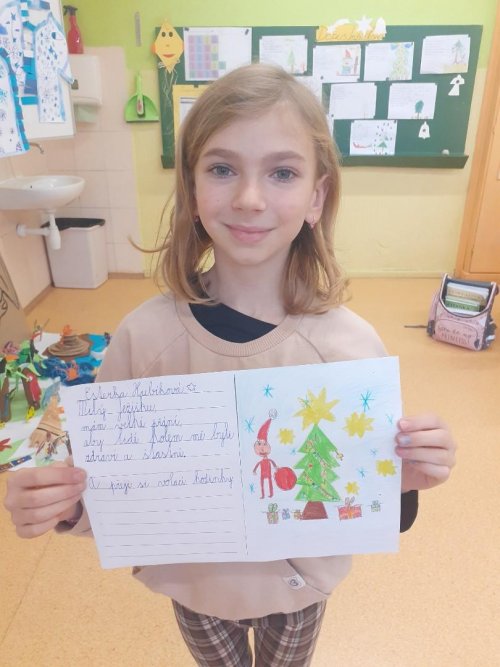 Esterka Kubíková
Milý Ježíšku,
mám velké přání,
aby lidé kolem mě byli
zdraví a šťastní.
A přeji si volací hodinky